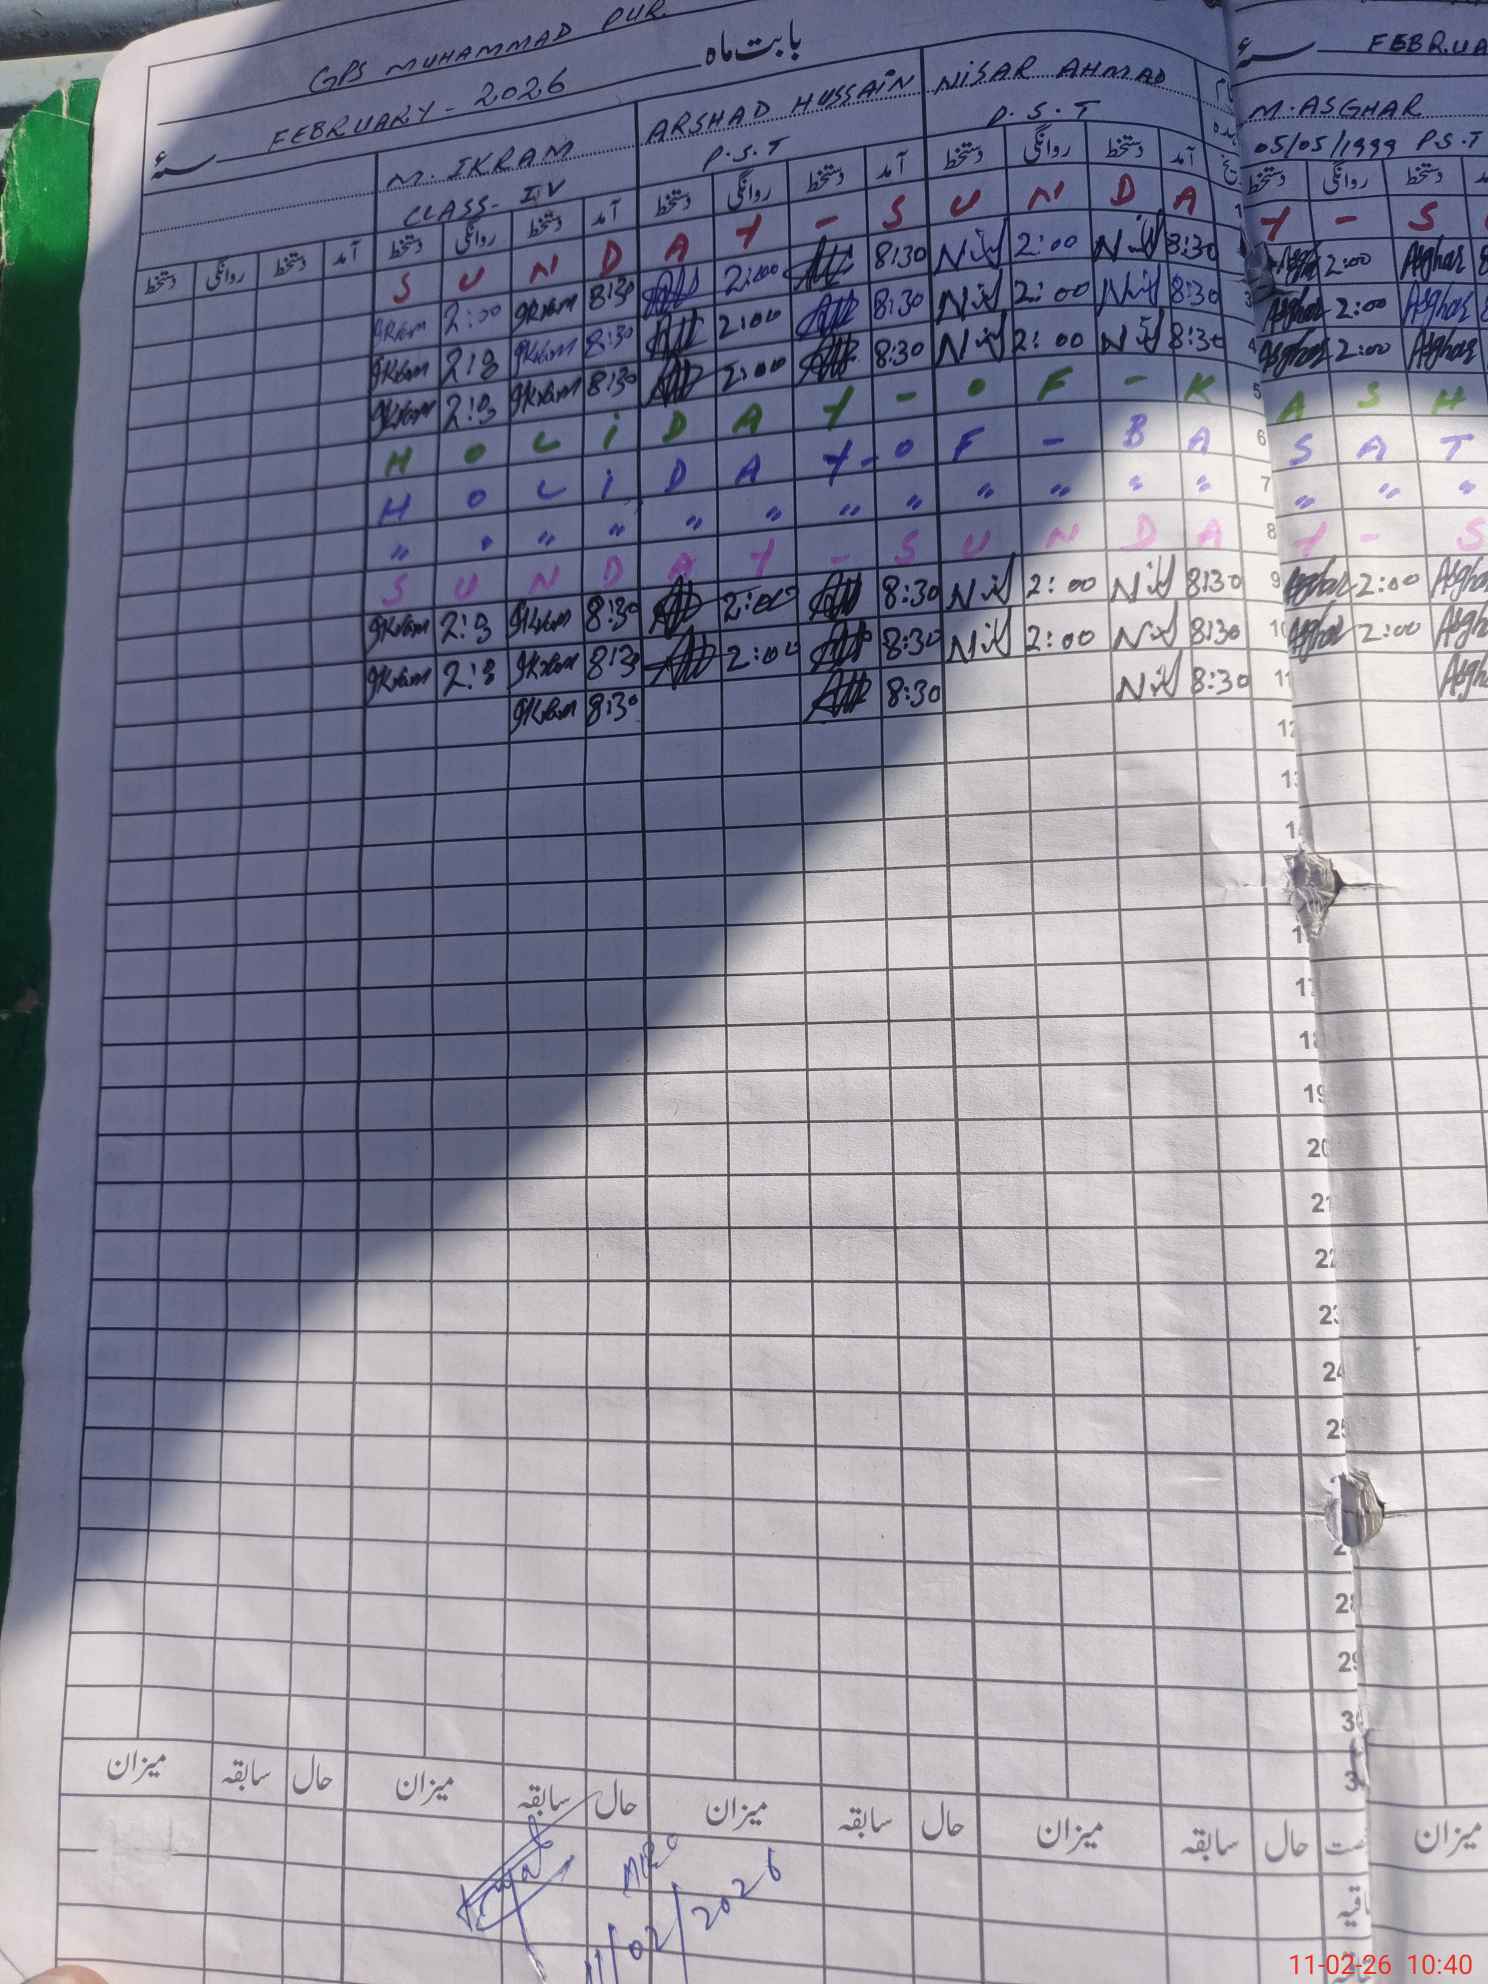 GPS MUHAMMAD PUR.
بابت ماہ
FEBRUARY - 2026
FEBRUA
M. IKRAM ARSHAD HUSSAIN NISAR AHMAD M. ASGHAR
CLASS- IV P.S.T P.S.T 05/05/1999 P.S.T
دستخط روانگی دستخط آمد دستخط روانگی دستخط آمد دستخط روانگی دستخط آمد دستخط روانگی دستخط آمد دستخط روانگی دستخط
S U N D A Y - S U N D A 1 Y - S
Ikram 2:00 Ikram 8:30 2:00 8:30 Nis 2:00 Nis 8:30 Asghar 2:00 Asghar
Ikram 2:00 Ikram 8:30 2:00 8:30 Nis 2:00 Nis 8:30 3 Asghar 2:00 Asghar
Ikram 2:00 Ikram 8:30 2:00 8:30 Nis 2:00 Nis 8:30 4 Asghar 2:00 Asghar
H O L i D A Y - O F - K 5 A S H
H O L i D A Y - O F - B A 6 S A T
" " " " " " " " " " " " 7 " " "
S U N D A Y - S U N D A 8 Y - S
Ikram 2:00 Ikram 8:30 2:00 8:30 Nis 2:00 Nis 8:30 9 Asghar 2:00 Asghar
Ikram 2:00 Ikram 8:30 2:00 8:30 Nis 2:00 Nis 8:30 10 Asghar 2:00
Ikram 8:30 8:30 Nis 8:30 11
12
13
17
18
19
20
21
22
23
24
25
28
29
30
میزان سابقہ حال میزان سابقہ حال میزان سابقہ حال میزان سابقہ حال میزان
11/02/2026
11-02-26 10:40